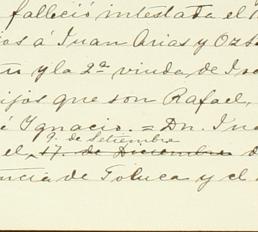 falleció intestada el
os á Juan Arias y Ozta
y la 2ª viuda, de
ijos que son Rafael,
é Ygnacio. = Dn.
9. de Setiembre
el, 17. de Diciembre
ncia de Toluca y el